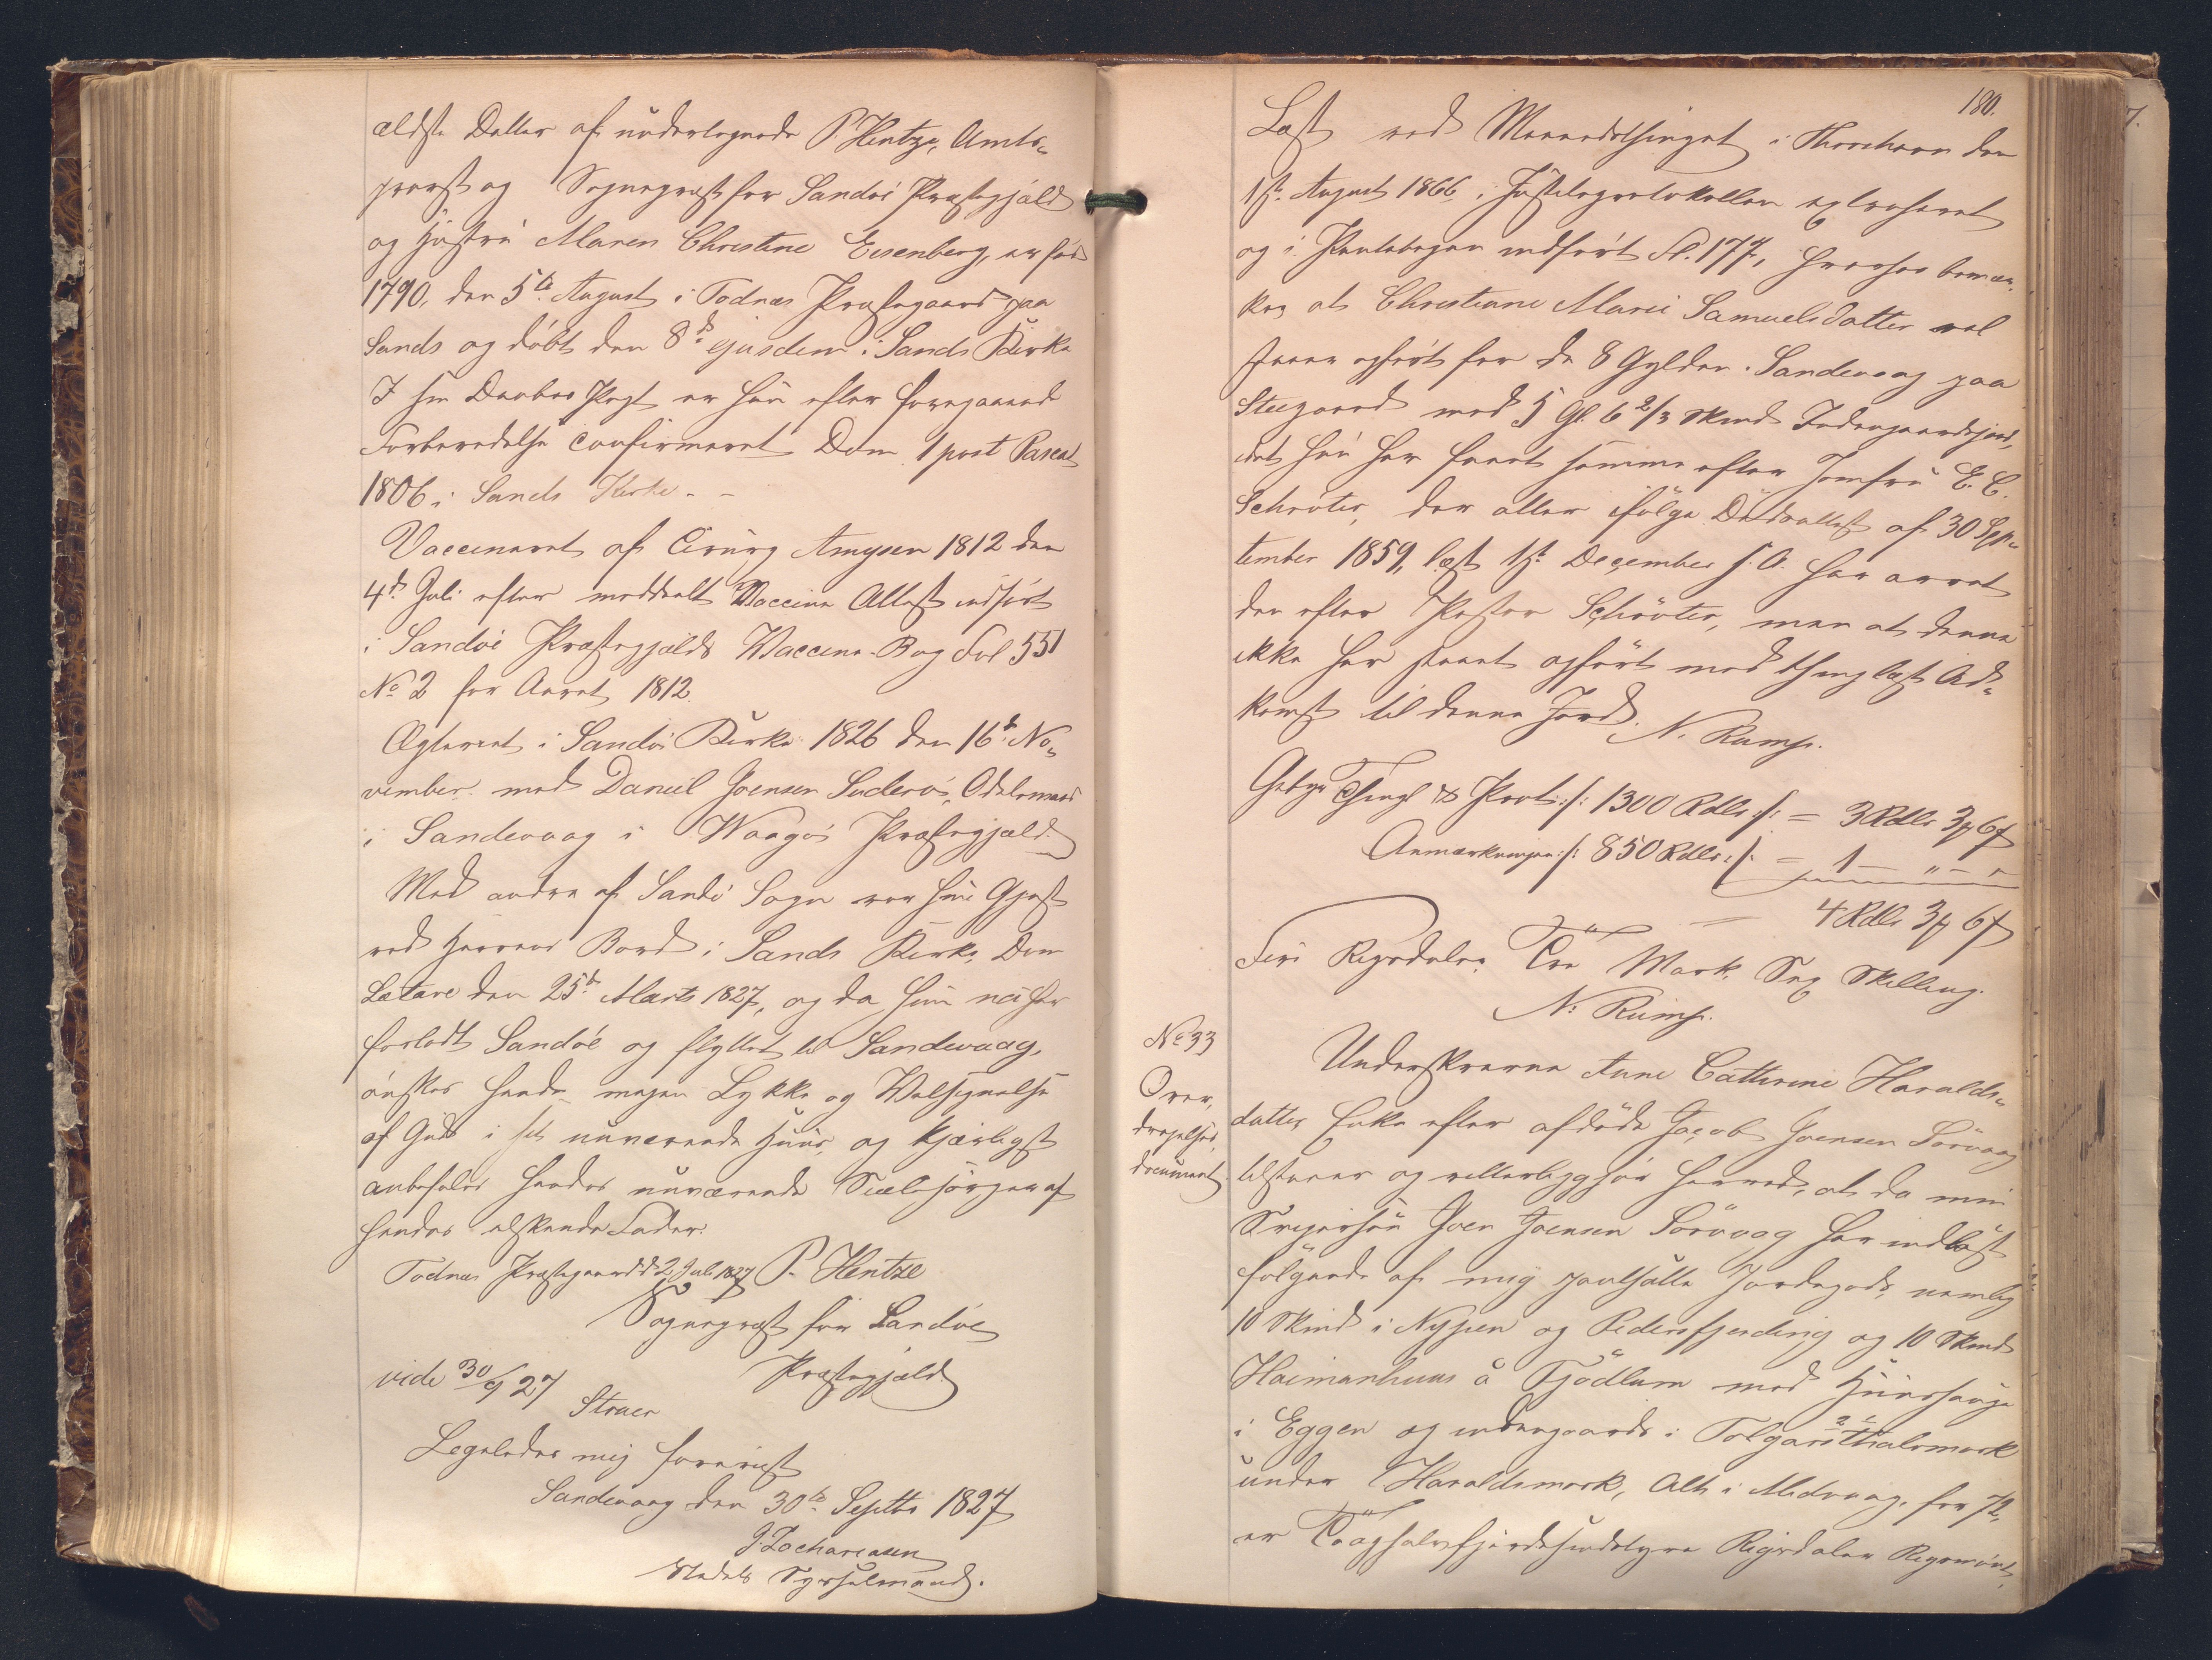 ældste Datter af undertegnede P. Hentze, Amts-
provst og Sognepræst for Sandøe Præstegjæld
og Hustru Maren Christine Eisenberg, er fød
1790, den 5te August i Todnæs Præstegaard paa
Sands og døbt den 8de ejusdem i Sands Kirke
I sin Daabes Pagt er hun efter foregaaende
Forberedelse confirmeret Dom 1 post Pascat
1806 i Sands Kirke. -
Vaccineret af Cirurg Amysen 1812 den
4de Juli efter meddeelt Vaccine Attest indført
i Sandøe Præstegjælds Vaccine-Bog Fol 551
No 2 for Aaret 1812.
Ægteviet i Sandøe Kirke 1826 den 16de No-
vember med Daniel Joensen Suderø, Odelsmand
i Sandevaag i Waagøs Præstegjæld.
Med andre af Sandø Sogn var hun Gjest
ved Herrens Bord i Sands Kirke Dom
Lætare den 25de Marts 1827, og da hun nu har
forladt Sandøe og flyttet til Sandevaag,
ønskes hende megen Lykke og Velsignelse
af Gud i sit nuværende Huus, og kjærligst
anbefales hendes nuværende Siælesørger af
hendes elskende Fader.
Todnæs Præstegaard d: 2 Juli 1827 P. Hentze
Sognepræst for Sandøe
Præstegjæld
vide 30/9 27
Straer
Ligeledes mig foreviist
Sandevaag den 30te Septbr 1827
J. Zachareasen
Stedets Sysselmand.
180.
Læst ved Maanedsthinget i Thorshavn den
1ste August 1866, i Justitsprotokollen extraheret
og i Pantebogen indført Fl. 177, hvorhos bemær-
kes at Christiane Marie Samuelsdatter vel
staaer opført for de 8 Gylden i Sandevaag paa
Steigaard med 5 Gl. 6 2/3 Skind Indengaardsjord,
at hun har faaet samme efter Jomfru E. C.
Schrøter, der atter ifølge Dødsattest af 30 Sep-
tember 1859, læst 1ste December s. A. har arvet
den efter Pastor Schrøter, men at denne
ikke har staaet opført med thinglæst Ad-
komst til denne Jord. N. Rump.
Gebyr Thingl & Prot: /: 1300 Rdlr :/ = 3 Rdlr 3 ₰ 6 ſ
Anmærkningen /: 850 Rdlr :/ = 1 - " - "
4 Rdlr 3 ₰ 6 ſ
Fire Rigsdaler Tre Mark Sex Skilling.
N. Rump.
No 33
Over-
dragelses
document
Underskrevne Anne Cathrine Haralds-
datter Enke efter afdøde Jacob Joensen Sørvaag
tilstaaer og vitterliggjør herved, at da min
Svigersøn Joen Joensen Sørvaag har indløst
følgende af mig pantsatte Jordegods, nemlig
10 Skind i Nypen og Pedersfjerding og 10 Skind
Heimanhuus á Tjødlum med Huushauge
i Eggen og indengaards i Tolgarsthalsmark
under Haraldsmark, Alt i Midvaag, for 72,
er Tooghalvfjerdsindstyve Rigsdaler Rigsmønt,